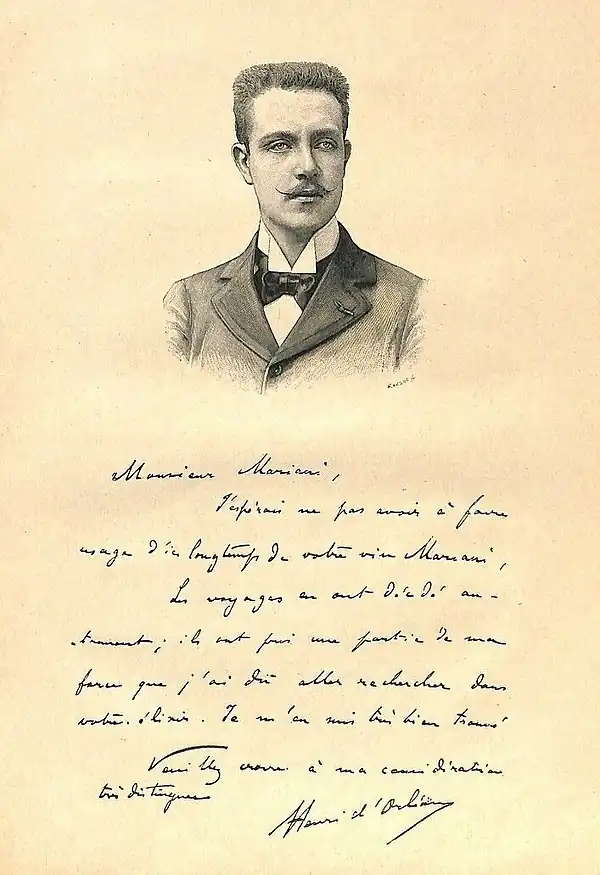 Monsieur Mariani,
J'espérais ne pas avoir à faire
usage d'ici longtemps de votre vin Mariani,
Les voyages en ont décidé au-
-trement ; ils ont pris une partie de ma
force que j'ai dû aller rechercher dans
votre élixir. Je m'en suis très bien trouvé
Veuillez croire à ma considération
très distinguée
Henri d'Orléans